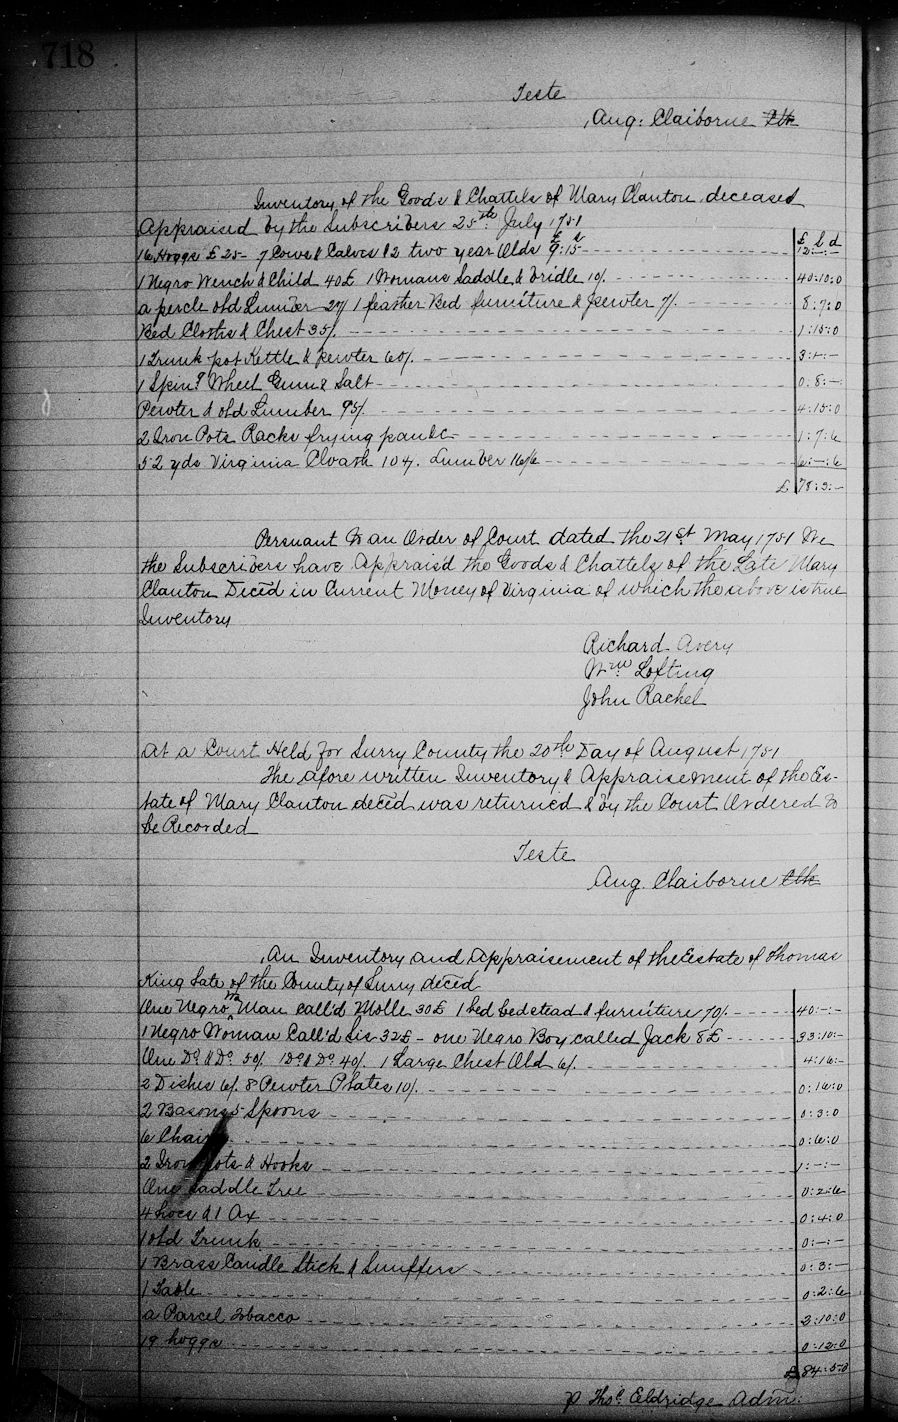 718
Teste
Aug: Claiborne Clk
Inventory of the Goods & Chattels of Mary Clanton deceased
Appraised by the Subscribers 25th July 1751
£ S d
16 Hoggs £25- 7 Cows & Calves & 2 two year Olds £9:15 12:-:-
1 Negro Wench & Child 40£ 1 Womans Saddle & Bridle 10/. 40:10:0
a percle old Lumber 27/ 1 feather Bed furniture & pewter 7/. 8:7:0
Bed Cloths & Chest 35/. 1:15:0
1 Trunk pot Kettle & pewter 60/. 3:-:-
1 Spin.g Wheel Gum & Salt 0:8:-
Pewter & old Lumber 95/. 4:15:0
2 Iron Pots Racks frying pan &c 1:7:6
52 yds Virginia Cloath 104/. Lumber 16/6 6:-:6
£ 78:3:-
Persuant to an Order of Court dated the 21st May 1751 We
the Subscribers have Apprais'd the Goods & Chattels of the Late Mary
Clanton Deced in Current Money of Virginia of which the above is true
Inventory
Richard Avery
Wm Lofting
John Rachel
At a Court Held for Surry County the 20th Day of August 1751
The afore written Inventory & Appraisement of the Es-
tate of Mary Clanton deced was returned & by the Court Ordered to
be Recorded
Teste
Aug. Claiborne Clk
An Inventory and Appraisement of the Estate of Thomas
King Late of the County of Surry deced
One Negro Wo Man call'd Molle 30£ 1 bed bedstead & furniture 70/. 40:-:-
1 Negro Woman Call'd Sis 32£ - one Negro Boy called Jack 8£ 33:10:-
One Do & Do 50/. 1 Do & Do 40/. 1 Large Chest Old 6/. 4:16:-
2 Dishes 6/. 8 Pewter Plates 10/. 0:16:0
2 Basons 5 Spoons 0:3:0
6 Chairs 0:6:0
2 Iron pots & Hooks 1:-:-
One Saddle Tree 0:2:6
4 hoes & 1 Ax 0:4:0
1 old Trunk 0:-:-
1 Brass Candle Stick & Snuffers 0:3:-
1 Table 0:2:6
a Parcel tobacco 3:10:0
19 hoggs 0:12:0
£ 84:5:0
p Thos Eldridge Adm: